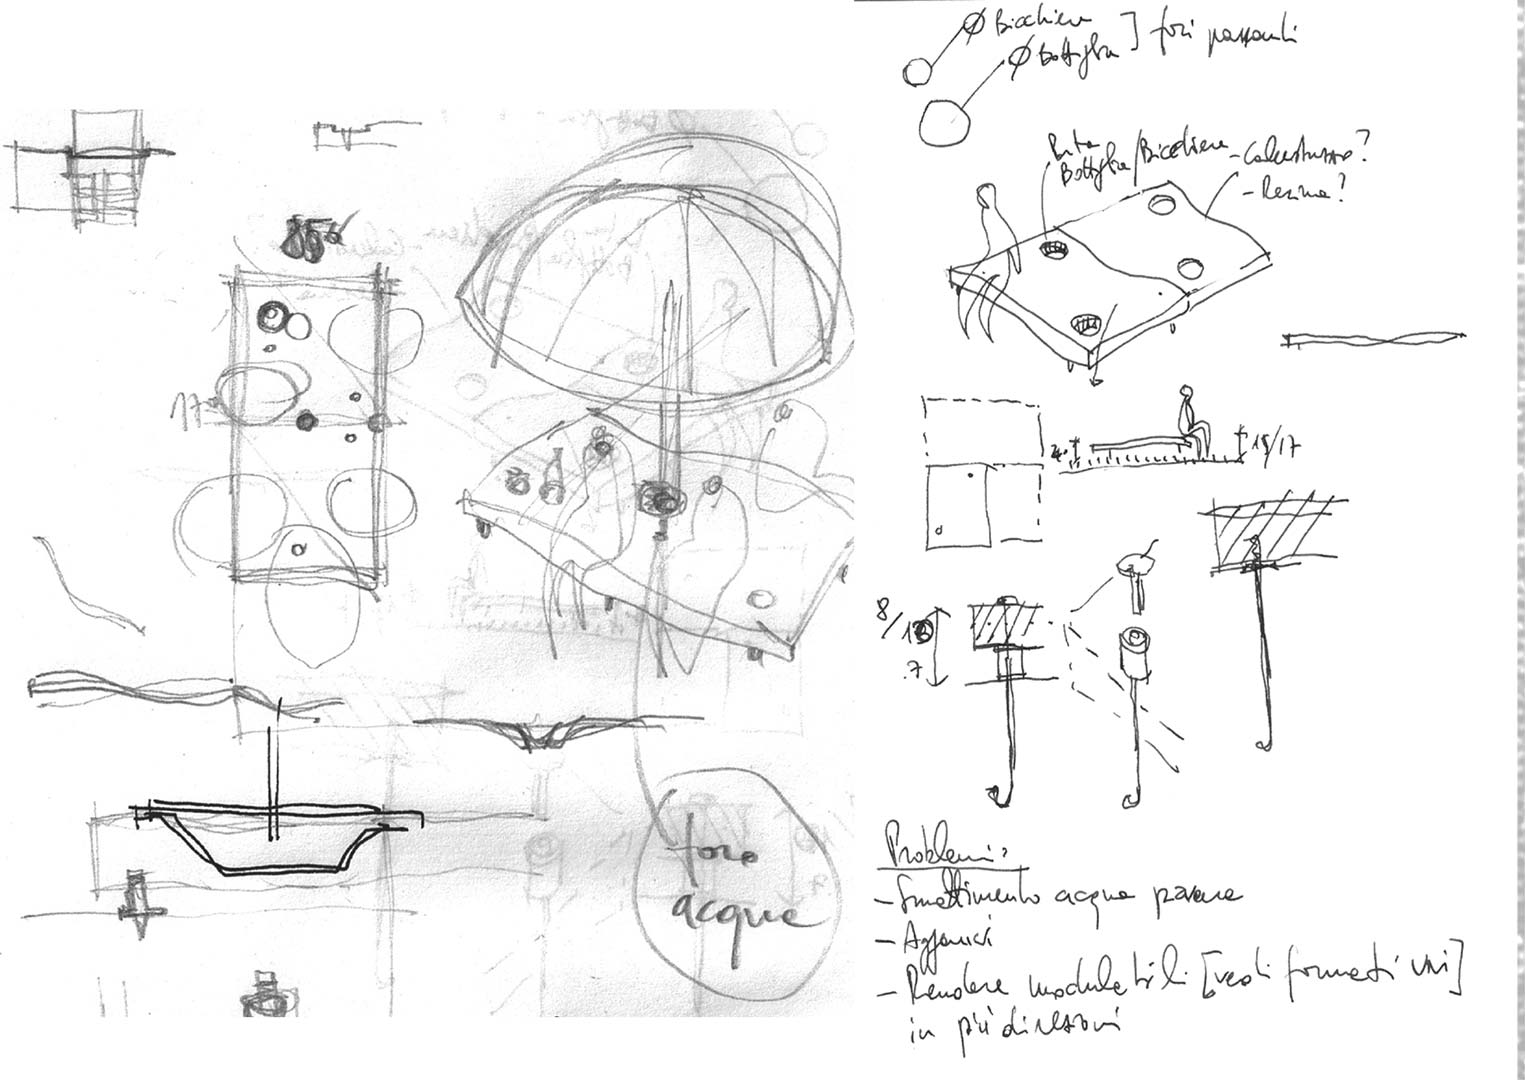 ø Bicchiere
ø Bottiglia ] fori passanti
Porta
Bottiglia/Bicchiere
- Calcestruzzo?
- Resina?
17
15/17
8/1
7
foro
acque
Problemi:
- Smaltimento acque piovane
- Agganci
- Rendere modulabili [vedi formati uni]
in più direzioni